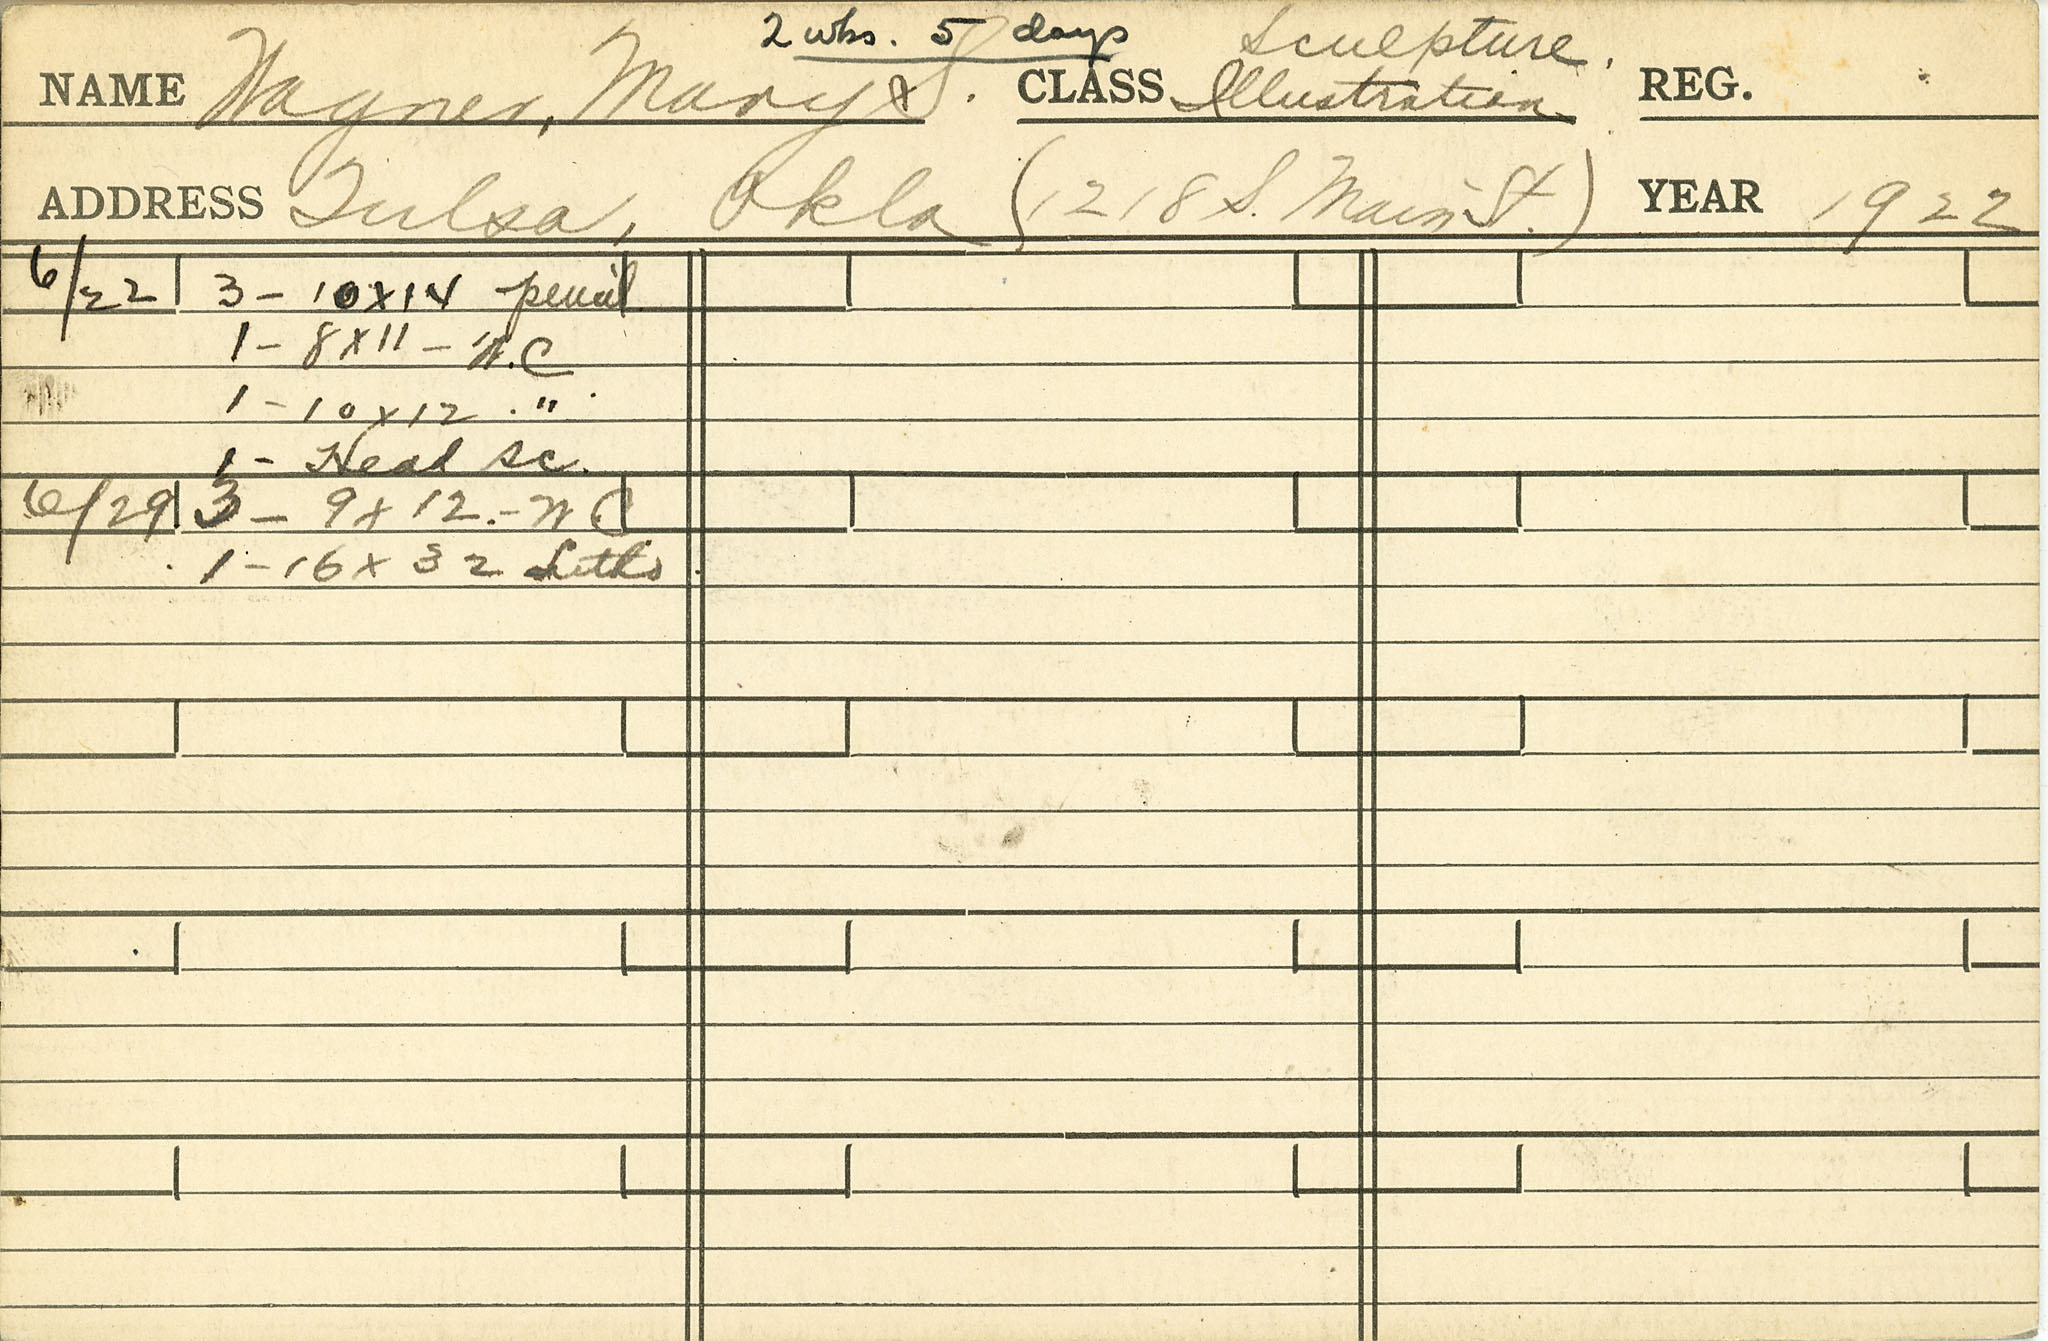 2 wks. 5 days
Sculpture.
NAME Wagner, Mary S. CLASS Illustration REG.
ADDRESS Tulsa, Okla (1218 S. Main St.) YEAR 1922
6/22 3 - 10 x 14 pencil
1 - 8 x 11 - W.C
1 - 10 x 12 "
1 - Head sc.
6/29 3 - 9 x 12. - W C
1 - 16 x 32 Litho